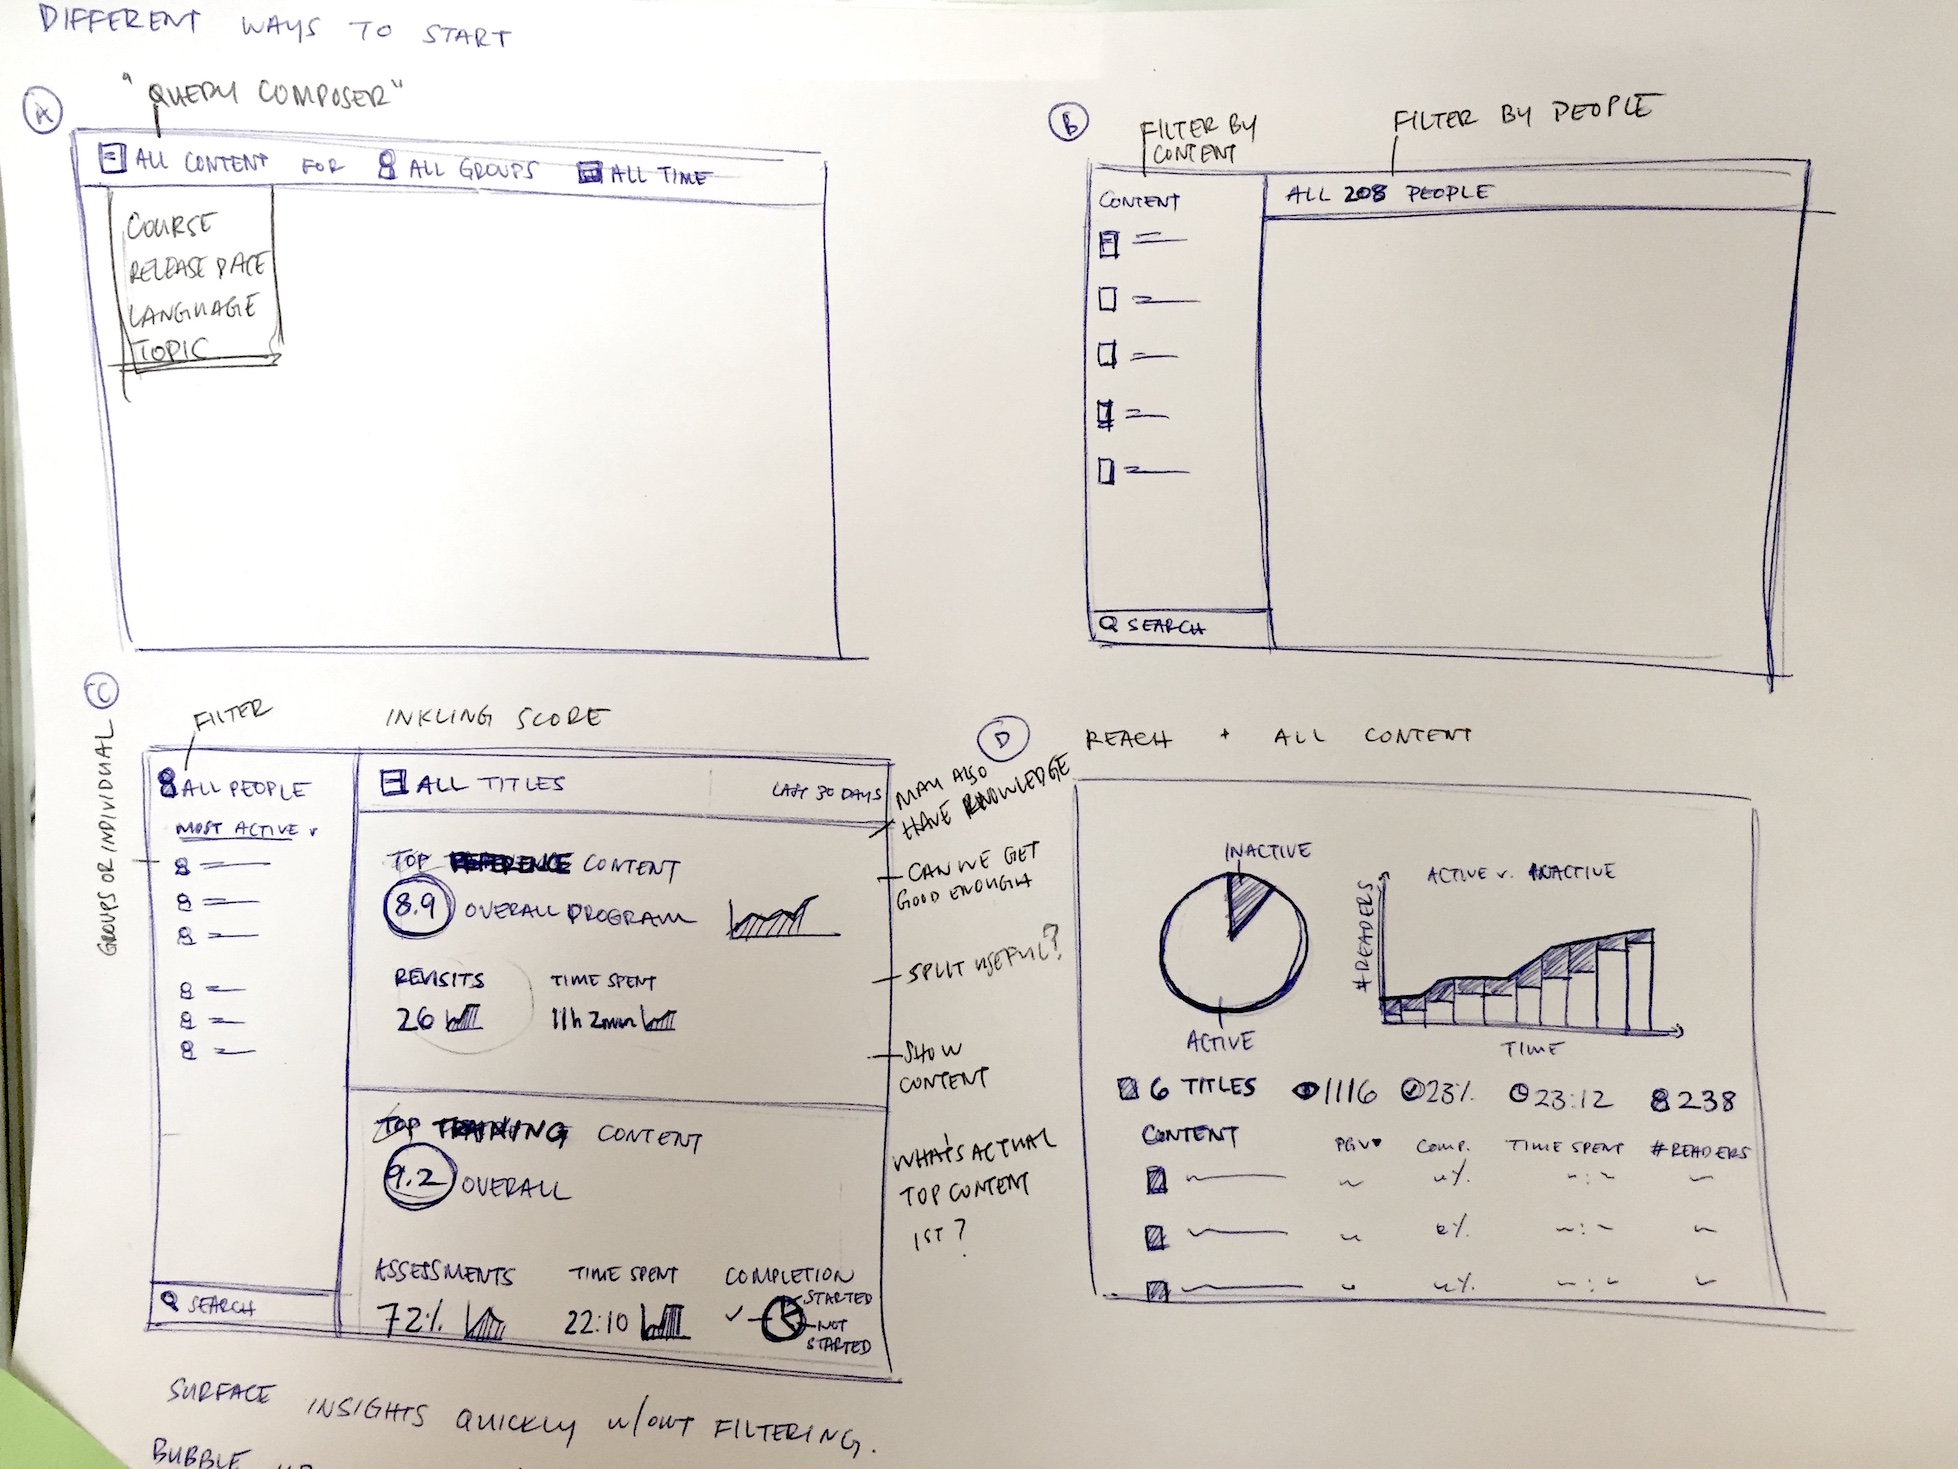 DIFFERENT WAYS TO START
A
"QUERY COMPOSER"
ALL CONTENT FOR ALL GROUPS ALL TIME
COURSE
RELEASE DATE
LANGUAGE
TOPIC
B
FILTER BY
CONTENT
FILTER BY PEOPLE
CONTENT
ALL 208 PEOPLE
SEARCH
C
FILTER
INKLING SCORE
GROUPS OR INDIVIDUAL
ALL PEOPLE
MOST ACTIVE
SEARCH
ALL TITLES
LAST 30 DAYS
TOP REFERENCE CONTENT
8.9 OVERALL PROGRAM
REVISITS TIME SPENT
26 11h 2min
TOP TRAINING CONTENT
9.2 OVERALL
ASSESSMENTS TIME SPENT COMPLETION
72% 22:10
STARTED
NOT
STARTED
MAY ALSO
HAVE KNOWLEDGE
CAN WE GET
GOOD ENOUGH
SPLIT USEFUL?
SHOW
CONTENT
WHAT'S ACTUAL
TOP CONTENT
1ST?
D
REACH + ALL CONTENT
INACTIVE
ACTIVE
ACTIVE v. INACTIVE
#READERS
TIME
6 TITLES 1116 23% 23:12 238
CONTENT PGV COMP. TIME SPENT #READERS
%
%
%
SURFACE INSIGHTS QUICKLY w/OUT FILTERING.
BUBBLE UP